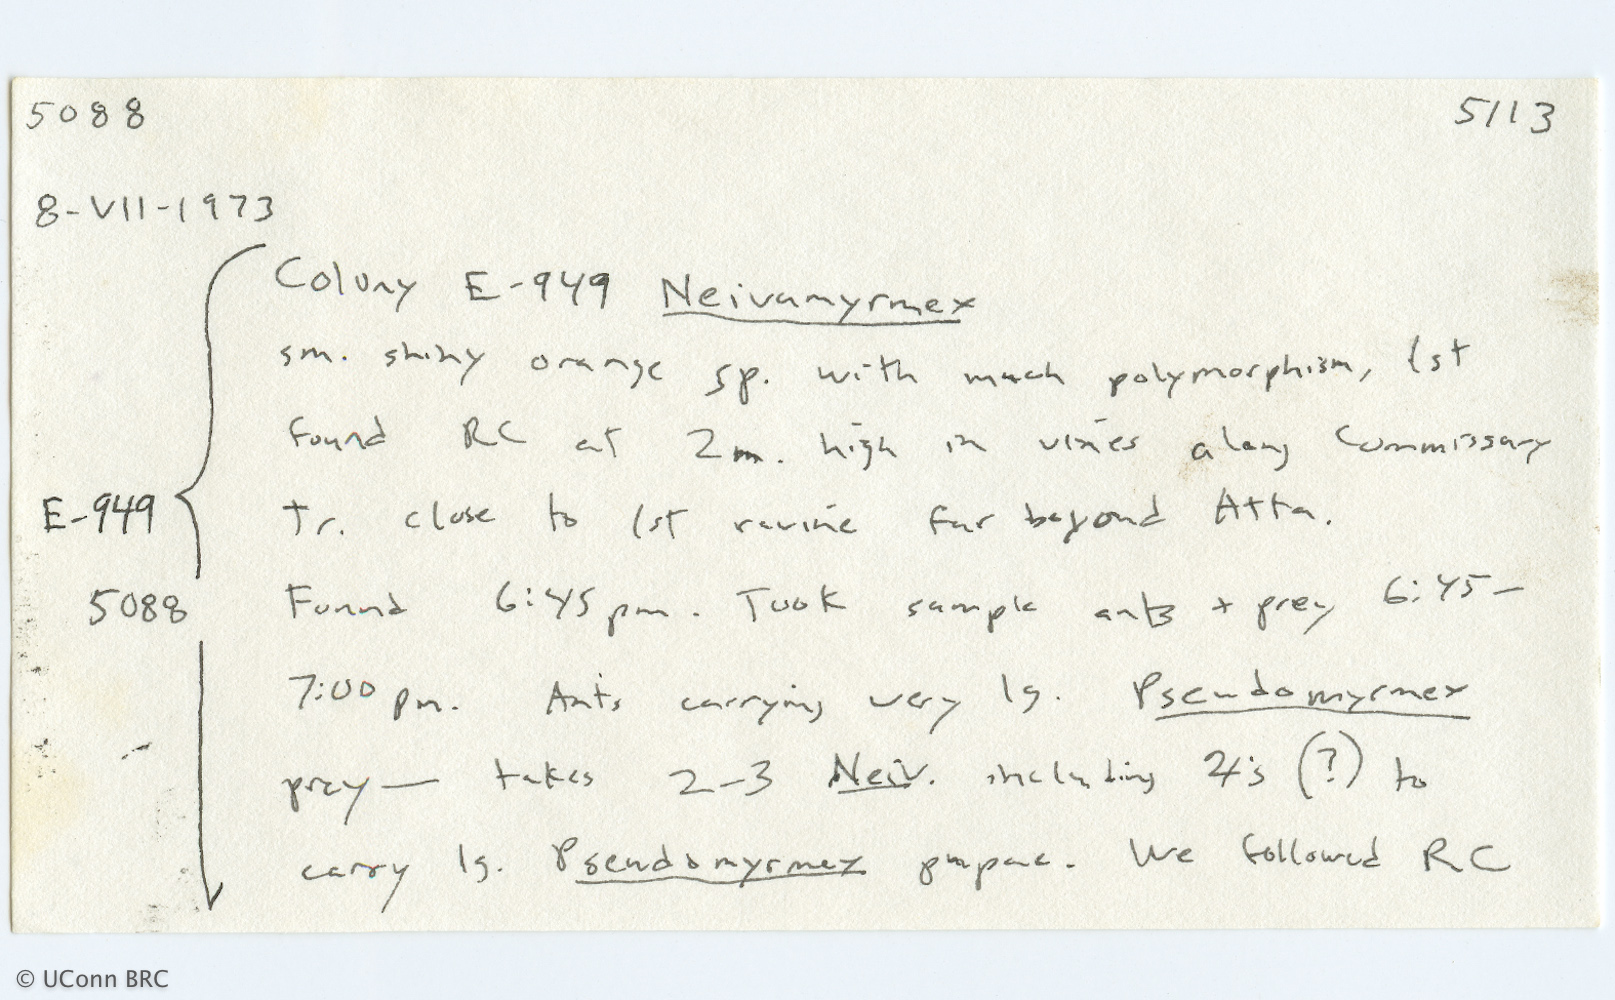 5088 5113
8-VII-1973
Colony E-949 Neivamyrmex
sm. shiny orange sp. with much polymorphism, 1st
found RC at 2m. high in vines along Commissary
E-949 Tr. close to 1st ravine far beyond Atta.
5088 Found 6:45 pm. Took sample ants + prey 6:45–
7:00 pm. Ants carrying very lg. Pseudomyrmex
prey— takes 2-3 Neiv. including 4's (?) to
carry lg. Pseudomyrmex pupae. We followed RC
© UConn BRC